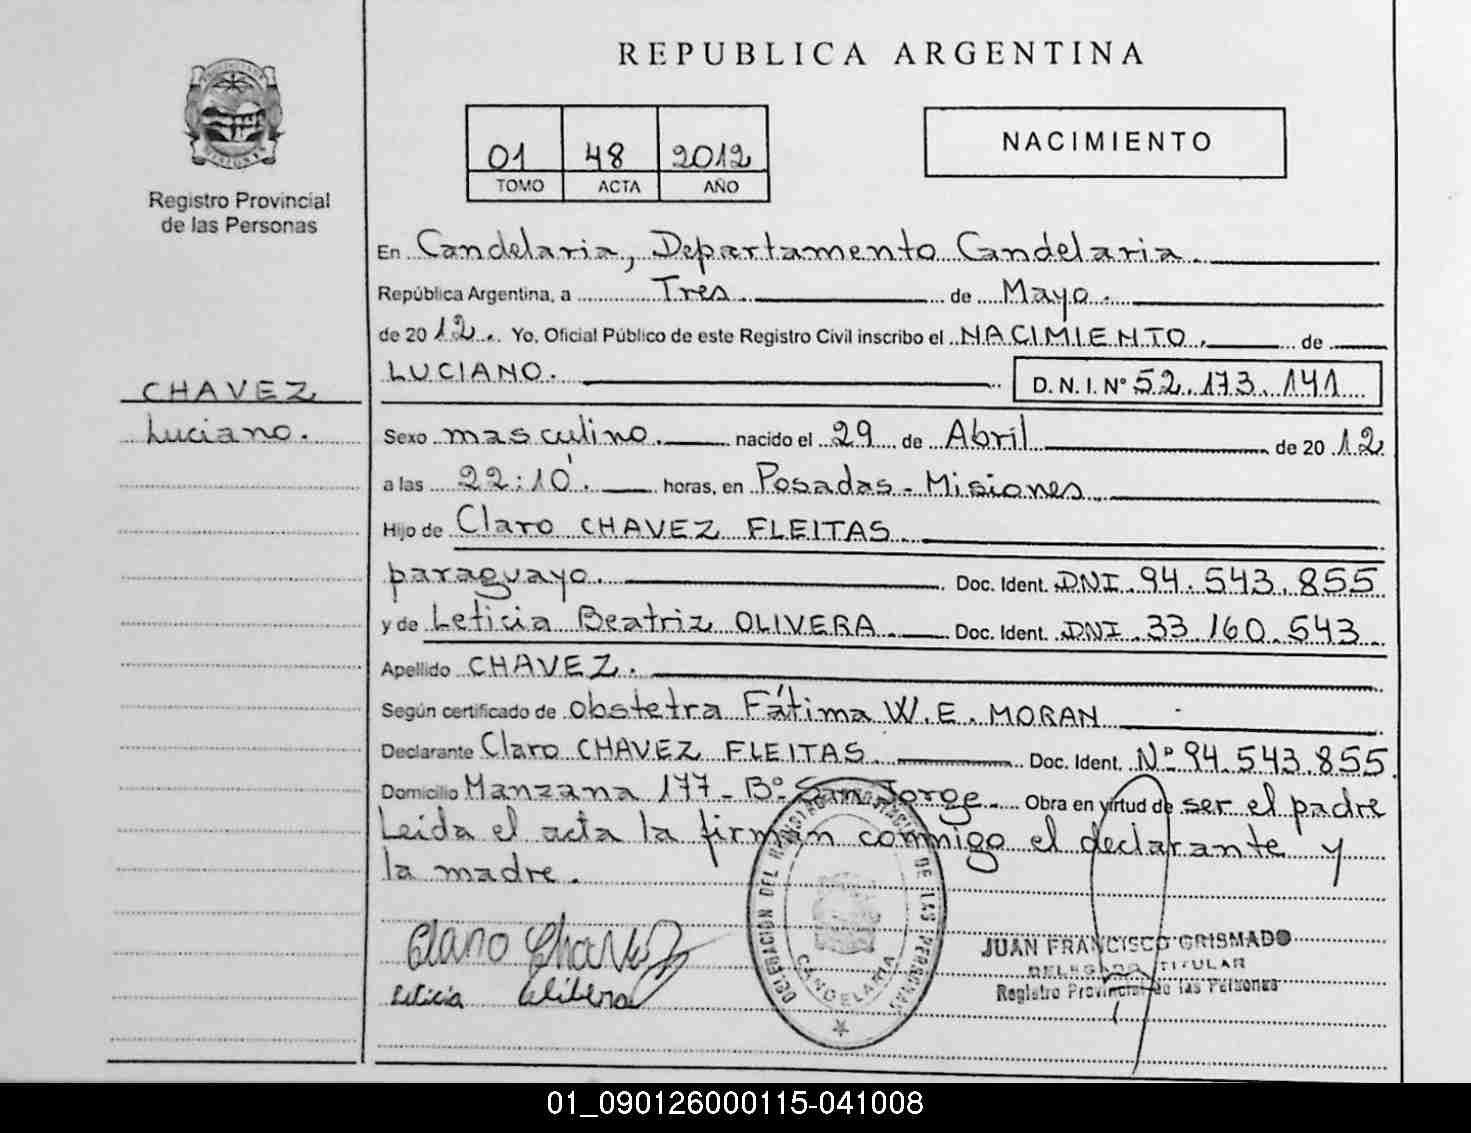 REPUBLICA ARGENTINA
Registro Provincial
de las Personas
01 48 2012
TOMO ACTA AÑO
NACIMIENTO
CHAVEZ
Luciano.
En Candelaria, Departamento Candelaria.
República Argentina, a Tres. de Mayo.
de 2012. Yo, Oficial Público de este Registro Civil inscribo el NACIMIENTO. de
LUCIANO. D.N.I. Nº 52.173.141
Sexo masculino. nacido el 29 de Abril de 2012
a las 22:10'. horas, en Posadas - Misiones.
Hijo de Claro CHAVEZ FLEITAS
paraguayo. Doc. Ident. DNI. 94.543.855
y de Leticia Beatriz OLIVERA. Doc. Ident. DNI. 33.160.543
Apellido CHAVEZ.
Según certificado de obstetra Fátima W. E. MORAN
Declarante Claro CHAVEZ FLEITAS. Doc. Ident. Nº 94.543.855.
Domicilio Manzana 177 - Bº San Jorge. Obra en virtud de ser el padre
Leída el acta la firman conmigo el declarante y
la madre.
Claro Chavez
Leticia
DELEGACIÓN DEL REGISTRO DE LAS PERSONAS
CANDELARIA
JUAN FRANCISCO GRISMADO
DELEGADO TITULAR
Registro Provincial de las Personas
01_090126000115-041008